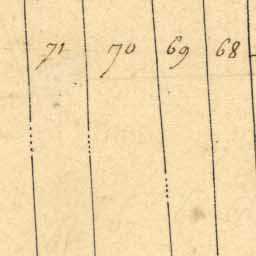 71 70 69 68